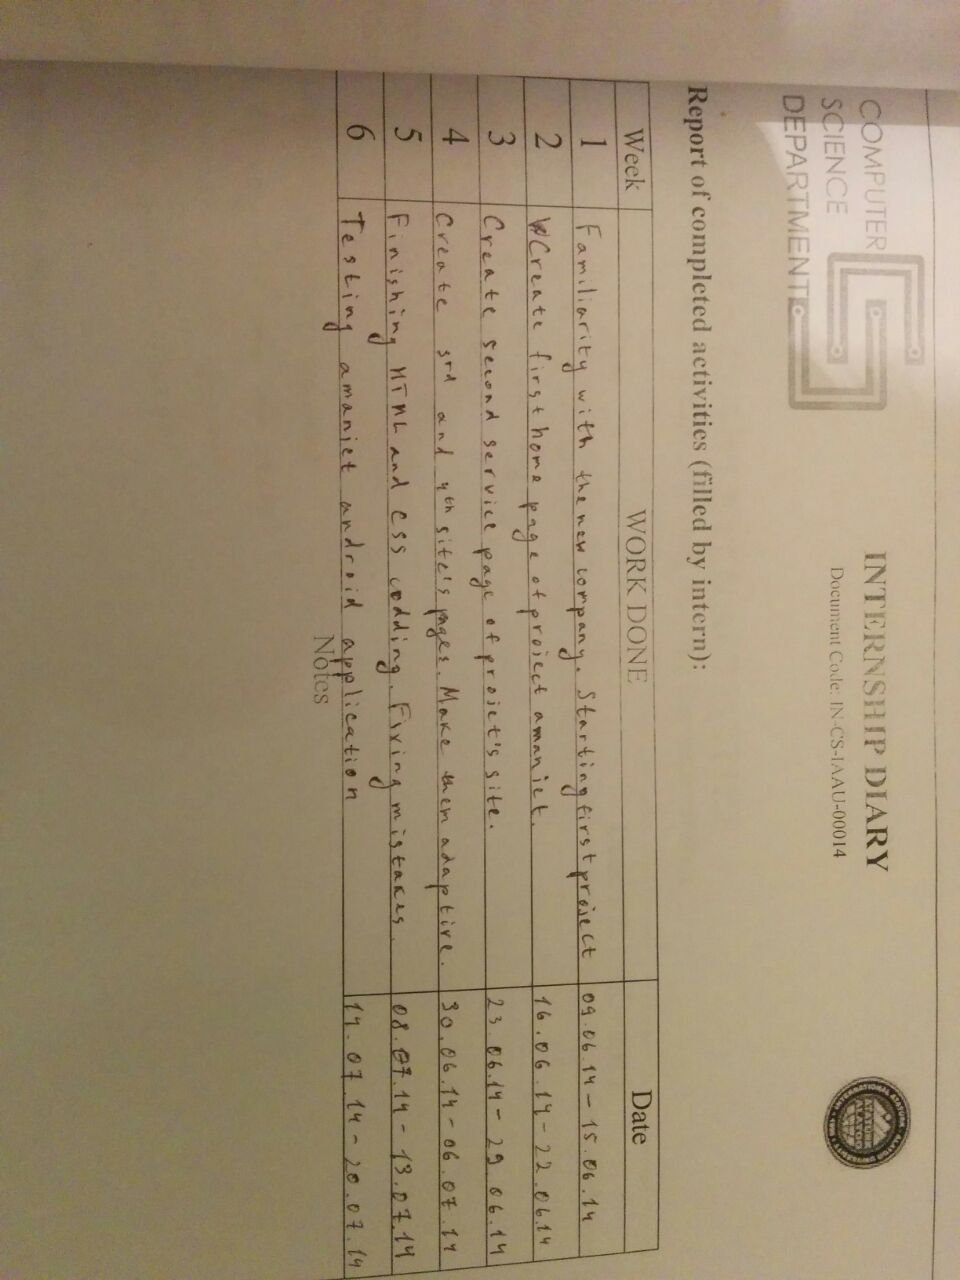 COMPUTER
SCIENCE
DEPARTMENT
INTERNSHIP DIARY
Document Code: IN-CS-IAAU-00014
Report of completed activities (filled by intern):
Week WORK DONE Date
1 Familiarity with the new company. Starting first project 09.06.14 - 15.06.14
2 Create first home page of project amaniet. 16.06.14 - 22.06.14
3 Create second service page of projet's site. 23.06.14 - 29.06.14
4 Create 3rd and 4th site's pages. Make them adaptive. 30.06.14 - 06.07.14
5 Finishing HTML and CSS codding. Fixing mistakes. 08.07.14 - 13.07.14
6 Testing amaniet android application 14.07.14 - 20.07.14
Notes